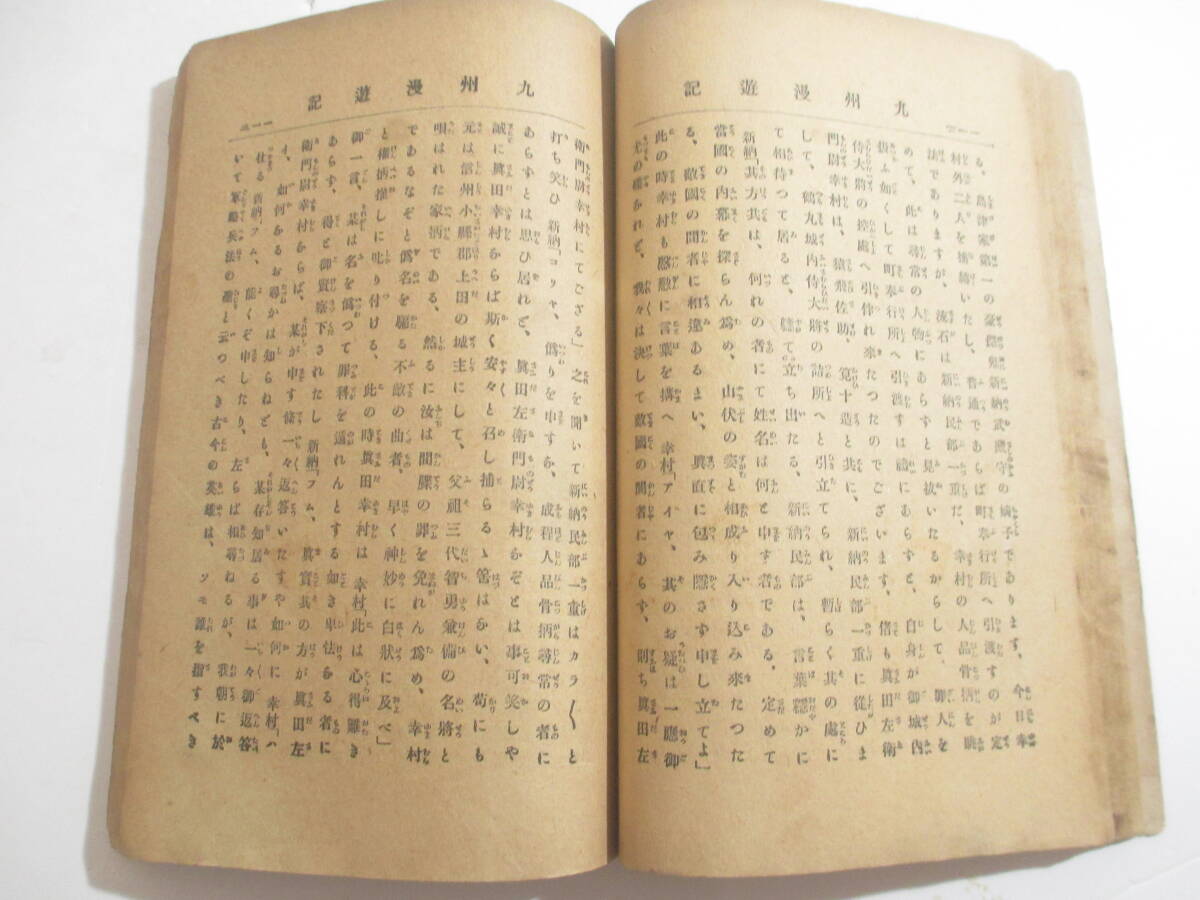 九州漫遊記
る、島津家第一の豪傑鬼新納武藏守の嫡子であります、今日幸
村外二人を捕縛いたし、普通であらば町奉行所へ引渡すのが定
法でありますが、流石は新納民部一重だ、幸村の人品骨柄を眺
めて、此は尋常の人物にあらずと見拔いたるからして、罪人を
扱ふ如くして町奉行所へ引渡すは禮にあらずと、自身が御城内
侍大將の控處へ引伴れ來たつたのでございます、偖り眞田左衛
門尉幸村は、猿飛佐助、筧十造と共に、新納民部一重に從ひま
して、鶴丸城内侍大將の詰所へと引立てられ、暫らく其の處に
て相待つて居ると、軈て立ち出たる、新納民部は、言葉穩かに
新納「其方共は、何れの者にて姓名は何と申す者である、定めて
當國の内幕を探らん爲め、山伏の姿と相成り入り込み來たつた
る、敵國の間者に相違あるまい、眞直に包み隱さず申し立てよ」
此の時幸村も慇懃に言葉を搆へ 幸村「アイヤ、其のお疑は一應御
尤の樣なれど、我々は決して敵國の間者にあらず、則ち眞田左
九州漫遊記
一一三
衛門尉幸村にてござる」之を聞いて新納民部一重はカラ〱と
打ち笑ひ 新納「コリャ、僞りを申すな、成程人品骨柄尋常の者に
あらずとは思ひ居れど、眞田左衛門尉幸村なぞとは事可笑しや
誠に眞田幸村ならば斯く安々と召し捕らるゝ筈はない、苟にも
元は信州小縣郡上田の城主にして、父祖三代智勇兼備の名將と
唄はれた家柄である、然るに汝は間牒の罪を免れん爲め、幸村
であるなぞと僞名を騙る不敵の曲者、早く神妙に白狀に及べ」
と權柄推しに叱り付ける、此の時眞田幸村は 幸村「此は心得難き
御一言、某は名を僞つて罪科を遁れんとする如き卑怯なる者に
あらず、得と御賢察下されたし 新納「フム、眞實其の方が眞田左
衛門尉幸村ならば、某が申す條一々返答いたすや如何に 幸村「ハ
イ、如何なるお尋かは知らねども、某存知居る事は一々御返答
仕る 新納「フム、能くぞ申したり、左らば相尋ねるが、我朝に於
いて軍略兵法の達と云つべき古今の英雄は、ソモ誰を指すべき